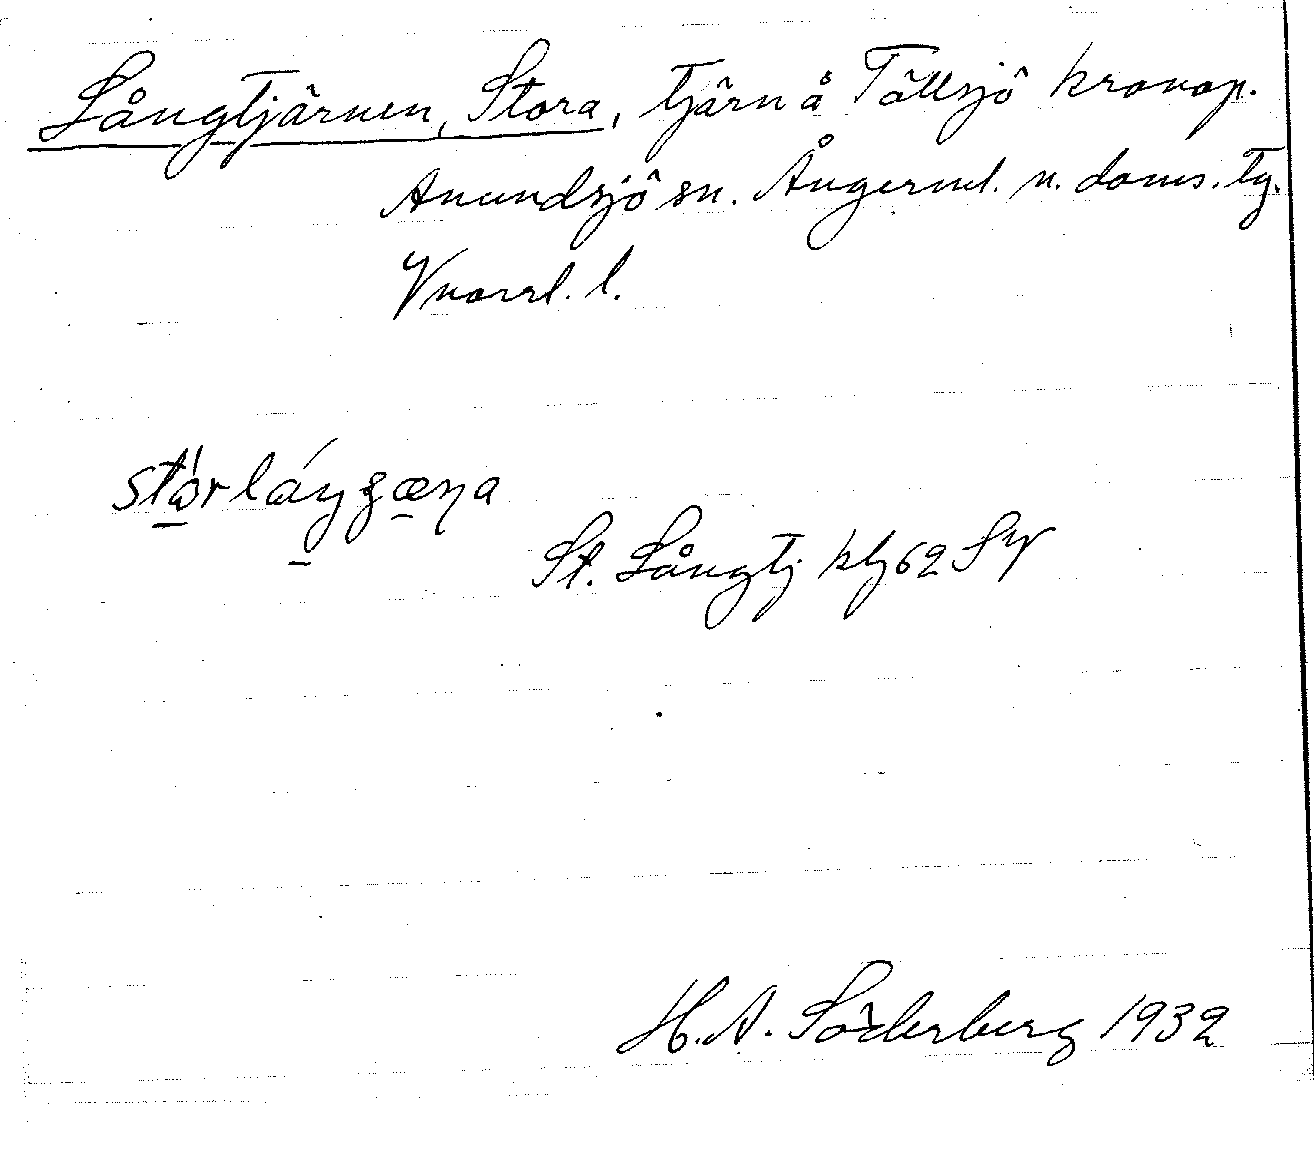 Långtjärnen, Stora, tjärn å Tällsjö kronop.
Anundsjö sn. Ångerml. n. doms. tg.
Vnorrl. l.
St. Långtj kbl 62 Sv
H. A. Söderberg 1932